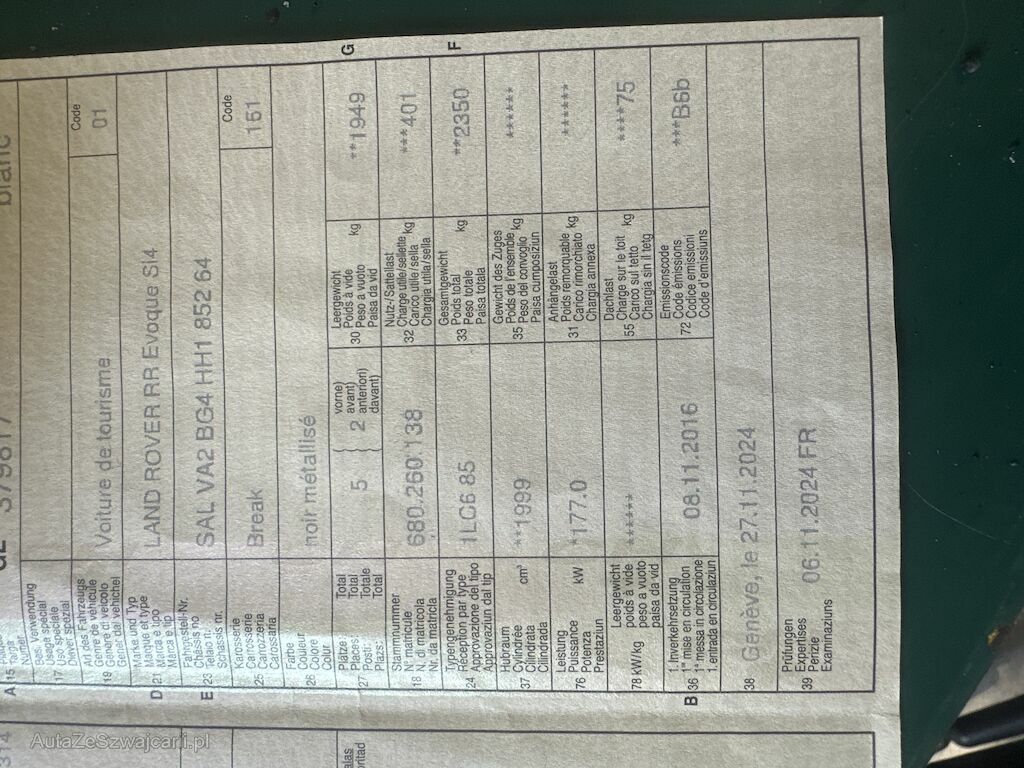 A 15 Targa
Numer
GE 379817
blanc
Bes. Verwendung
Usage spécial
17 Uso speciale
Diever spezial
Art des Fahrzeugs
Genre de véhicule
19 Genere di veicolo
Gener dal vehichel
Voiture de tourisme
Code
01
Marke und Typ
Marque et type
D 21 Marca e tipo
Marca e tip
LAND ROVER RR Evoque SI4
Fahrgestell-Nr.
Châssis no
E 23 Telaio n.
Schassis nr.
SAL VA2 BG4 HH1 852 64
Karosserie
Carrosserie
25 Carrozzeria
Carossaria
Break
Code
151
Farbe
Couleur
26 Colore
Colur
noir métallisé
Plätze: Total
Places: Total
27 Posti: Totale
Plazs: Total
5 { 2
vorne)
avant)
anteriori)
davant)
Leergewicht
Poids à vide
30 Peso a vuoto kg
Paisa da vid
**1949
G
Stammnummer
N° matricule
18 N. di matricola
Nr. da matricla
680.260.138
Nutz-/Sattellast
Charge utile/sellette
32 Carico utile/sella kg
Chargia utila/sella
***401
Typengenehmigung
Réception par type
24 Approvazione del tipo
Approvaziun dal tip
1LC6 85
Gesamtgewicht
Poids total
33 Peso totale kg
Paisa totala
**2350
F
Hubraum
Cylindrée
37 Cilindrata cm³
Cilindrada
**1999
Gewicht des Zuges
Poids de l'ensemble
35 Peso del convoglio kg
Paisa cumposiziun
******
Leistung
Puissance
76 Potenza kW
Prestaziun
*177.0
Anhängelast
Poids remorquable
31 Carico rimorchiato kg
Chargia annexa
******
Leergewicht
poids à vide
78 kW/kg peso a vuoto
paisa da vid
******
Dachlast
Charge sur le toit
55 Carico sul tetto kg
Chargia sin il tetg
****75
1. Inverkehrsetzung
1re mise en circulation
B 36 1a messa in circolazione
1. entrada en circulaziun
08.11.2016
Emissionscode
Code émissions
72 Codice emissioni
Code d'emissiuns
***B6b
38 Genève, le 27.11.2024
Prüfungen
Expertises
39 Perizie
Examinaziuns
06.11.2024 FR
AutaZeSzwajcarii.pl